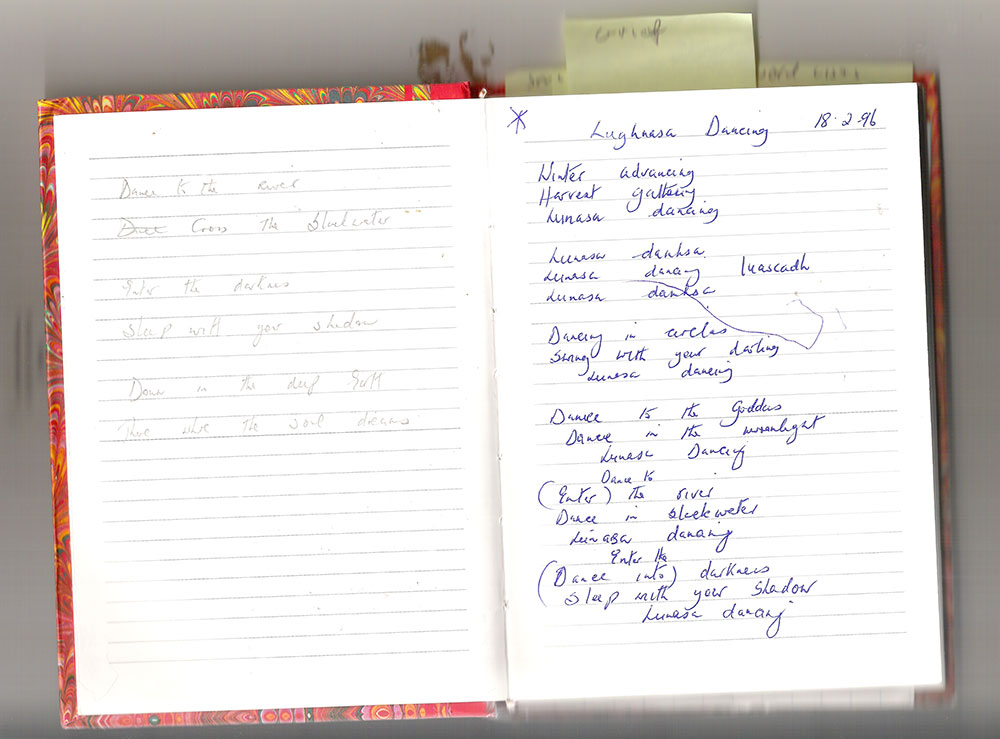 Dance to the river
Dance Cross the blackwater
Enter the darkness
Sleep with your shadow
Down in the deep
There where the soul dreams
Lughnasa Dancing 18.2.96
Winter advancing
Harvest gathering
Lunasa dancing
Lunasa danhsa
Lunasa dancing luascadh
Lunasa danhsa
Dancing in circles
Swing with your darling
Lunasa dancing
Dance to the Goddess
Dance in the moonlight
Lunasa Dancing
Dance to
(Enter) the river
Dance in blackwater
Lunasa dancing
Enter the
(Dance into) darkness
Sleep with your shadow
Lunasa dancing